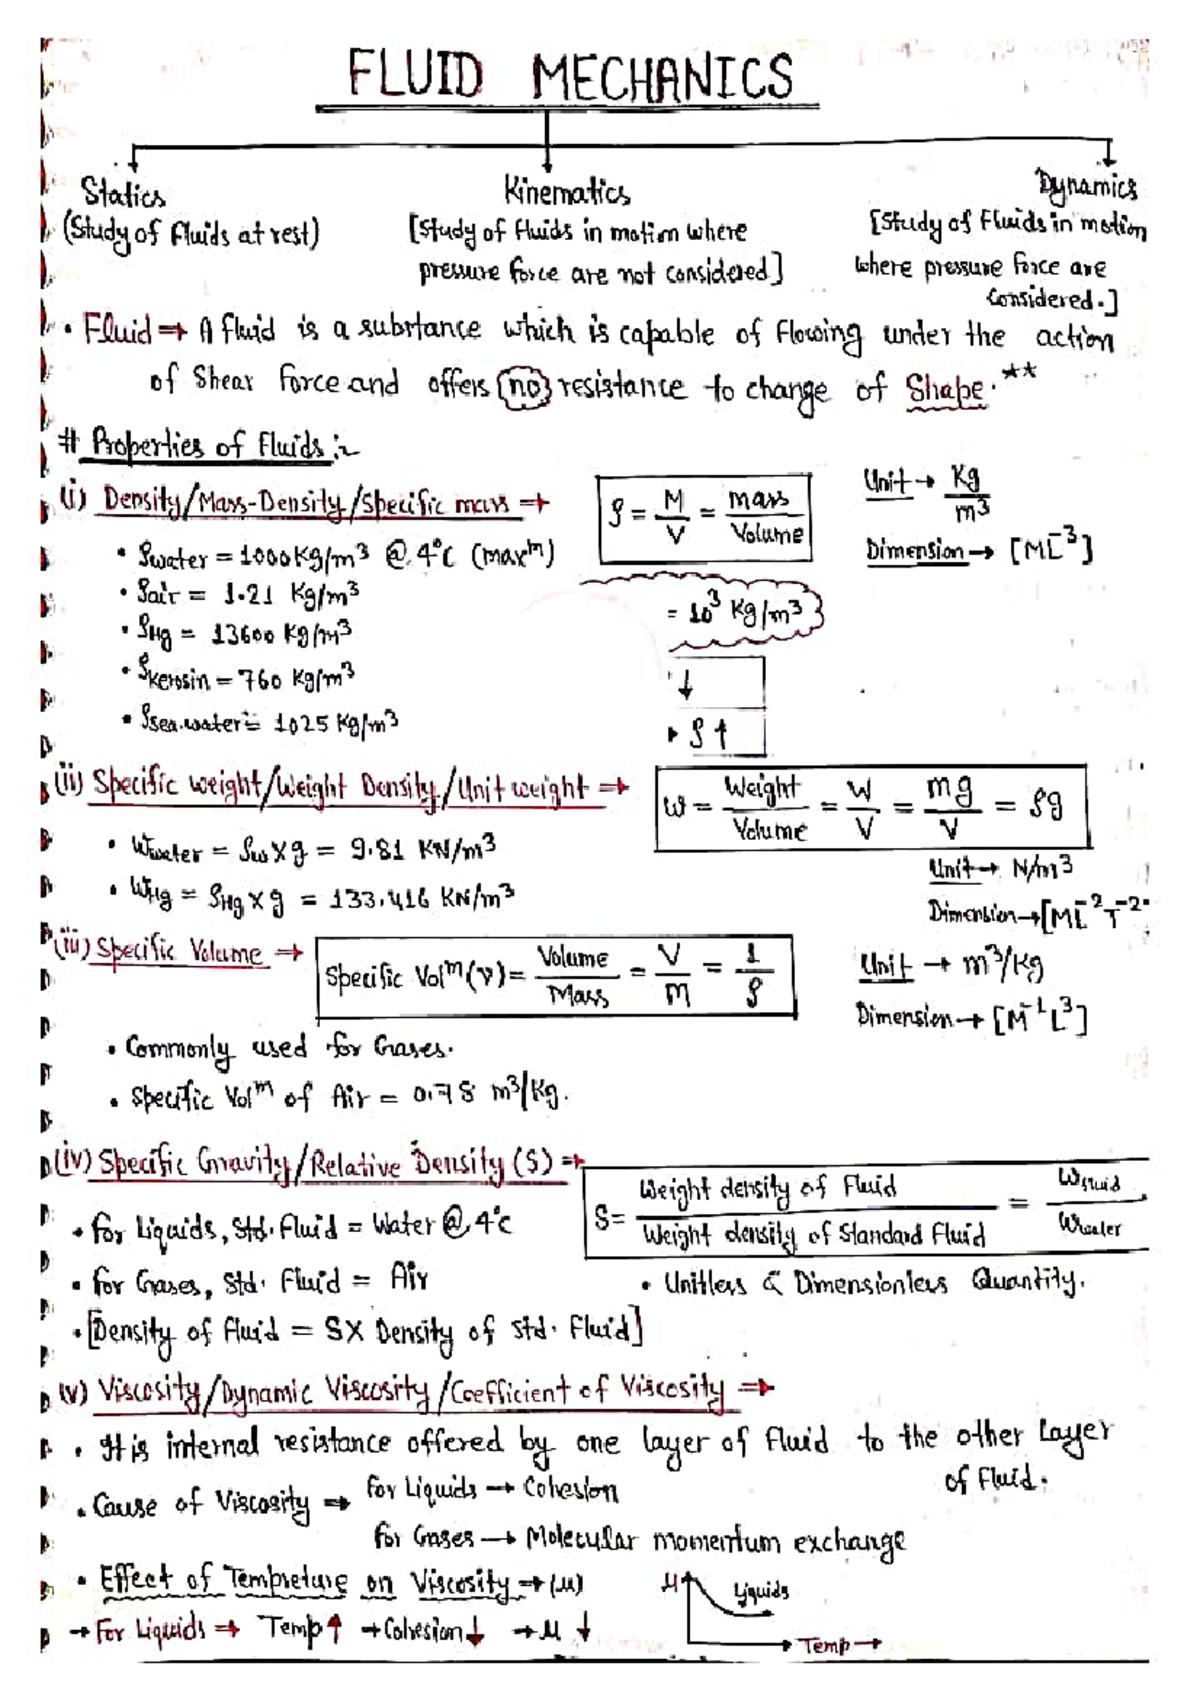 FLUID MECHANICS
Statics
(Study of Fluids at rest)
Kinematics
[Study of fluids in motion where
pressure force are not considered]
Dynamics
[Study of Fluids in motion
where pressure force are
Considered.]
• Fluid → A fluid is a substance which is capable of flowing under the action
of Shear Force and offers no resistance to change of Shape. **
# Properties of Fluids :-
(i) Density/Mass-Density/Specific mass →
ρ = M/V = mass/Volume
Unit → Kg/m³
Dimension → [ML⁻³]
• ρwater = 1000 Kg/m³ @ 4°C (maxᵐ)
• ρair = 1.21 Kg/m³
= 10³ Kg/m³
• ρHg = 13600 Kg/m³
• ρkerosin = 760 Kg/m³
↓
• ρsea.water = 1025 Kg/m³
ρ ↑
(ii) Specific weight/Weight Density/Unit weight →
w = Weight/Volume = W/V = mg/V = ρg
• Wwater = ρw x g = 9.81 KN/m³
Unit → N/m³
• WHg = ρHg x g = 133.416 KN/m³
Dimension → [ML⁻²T⁻²
(iii) Specific Volume →
Specific Volᵐ (ν) = Volume/Mass = V/m = 1/ρ
Unit → m³/Kg
Dimension → [M⁻¹L³]
• Commonly used for Gases.
• Specific Volᵐ of Air = 0.78 m³/Kg.
(iv) Specific Gravity/Relative Density (S) →
S = Weight density of Fluid/Weight density of Standard Fluid = Wfluid/Wwater
• for Liquids, Std. Fluid = Water @ 4°C
• for Gases, Std. Fluid = Air
• Unitless & Dimensionless Quantity.
• [Density of fluid = S X Density of std. Fluid]
(v) Viscosity/Dynamic Viscosity/Coefficient of Viscosity →
• It is internal resistance offered by one layer of Fluid to the other Layer
of Fluid.
• Cause of Viscosity → for Liquids → Cohesion
for Gases → Molecular momentum exchange
• Effect of Tempreture on Viscosity → (μ)
μ
Liquids
→ For Liquids → Temp ↑ → Cohesion ↓ → μ ↓
Temp →